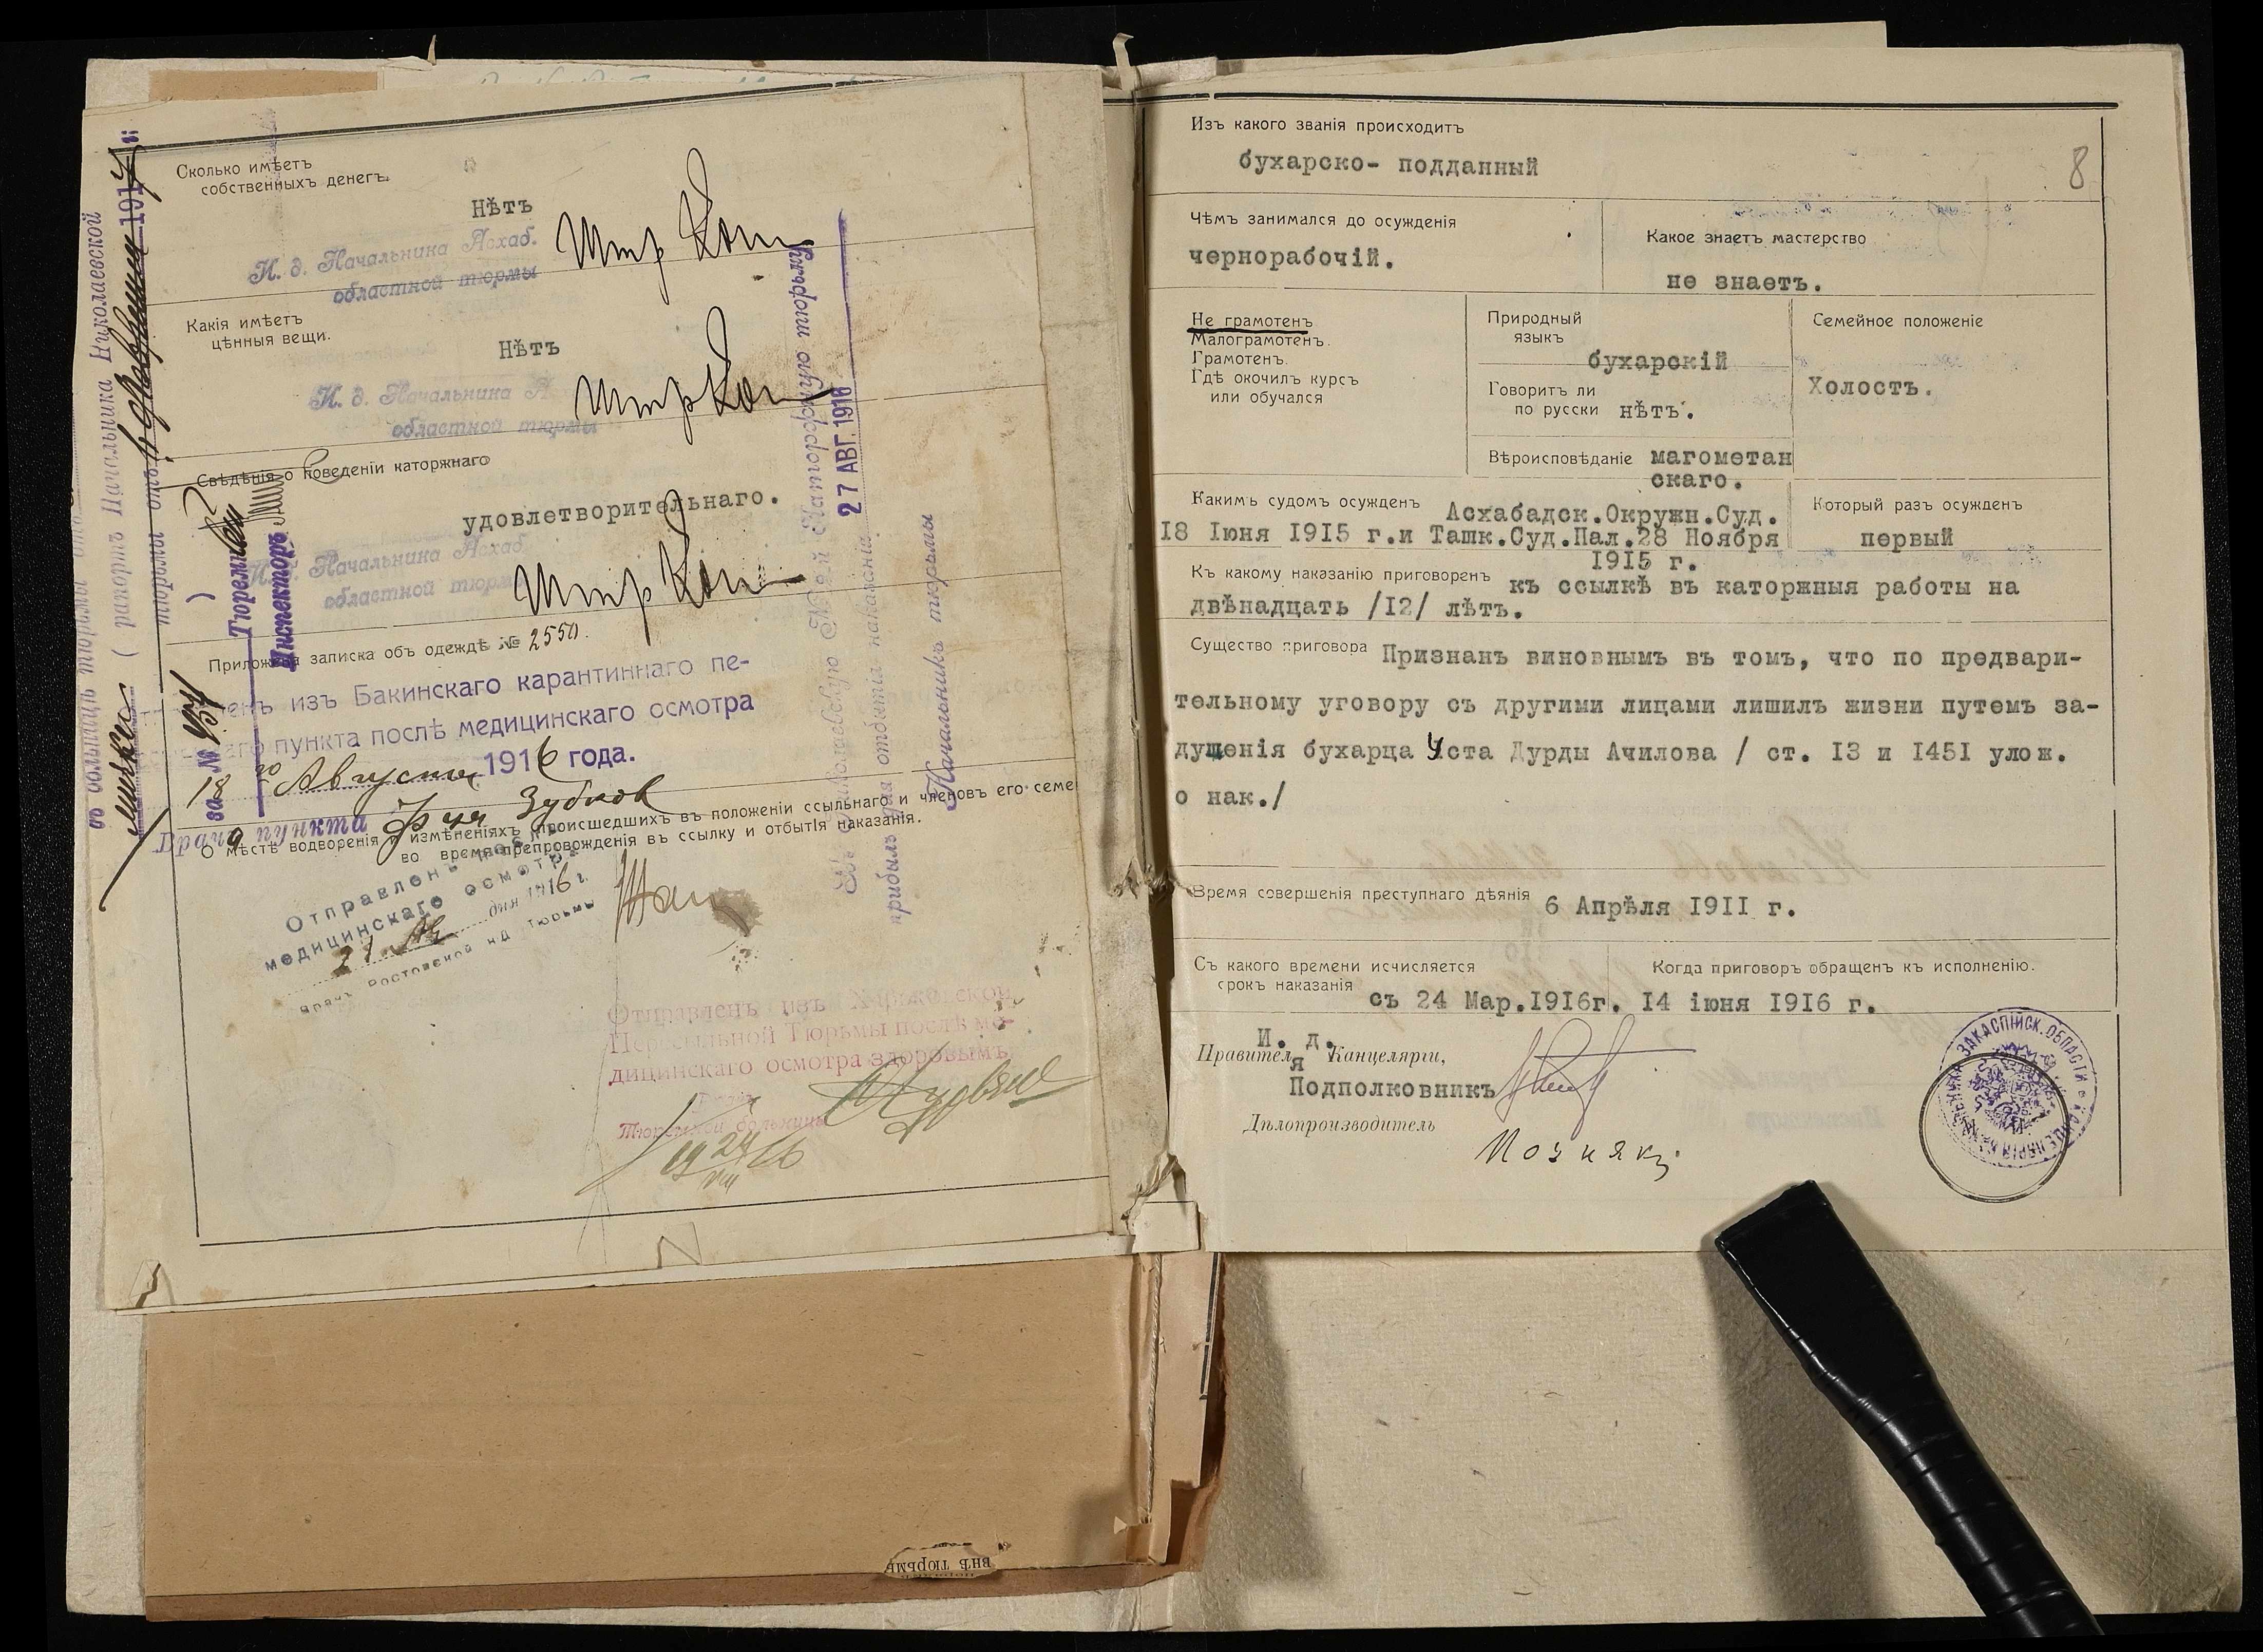 Сколько имѣетъ
собственныхъ денегъ.
Нѣтъ
И. д. Начальника Асхаб.
областной тюрьмы
Какія имѣетъ
цѣнныя вещи.
Нѣтъ
И. д. Начальника А
областной тюрьмы
Свѣдѣнія о поведеніи каторжнаго
удовлетворительнаго.
И. д. Начальника Асхаб
областной тюрьмы
Приложена записка объ одеждѣ № 2550.
енъ изъ Бакинскаго карантиннаго пе-
наго пункта послѣ медицинскаго осмотра
18 го Августа 1916 года.
Врачъ пункта Зубков
О мѣстѣ водворенія и измѣненіяхъ происшедшихъ въ положеніи ссыльнаго и членовъ его семе
во время препровожденія въ ссылку и отбытія наказанія.
Отправленъ послѣ
медицинскаго осмотра
21 дня 1916 г.
Врачъ Ростовской н/Д Тюрьмы
Отправленъ изъ Харьковской
Пересыльной Тюрьмы послѣ ме-
дицинскаго осмотра здоровымъ
Тюремной больницы
19 24/VIII 16
27 АВГ. 1916
прибылъ для отбытія наказанія
Начальникъ тюрьмы
рапортъ Начальника Николаевской
тюрьмы отъ
за № 957
Тюремный
Инспекторъ
внѣ тюрьмы
8
Изъ какого званія происходитъ
бухарско- подданный
Чѣмъ занимался до осужденія
чернорабочій.
Какое знаетъ мастерство
не знаетъ.
Не грамотенъ
Малограмотенъ.
Грамотенъ.
Гдѣ окочилъ курсъ
или обучался
Природный
языкъ
бухарскій
Говоритъ ли
по русски нѣтъ.
Вѣроисповѣданіе магометан
скаго.
Семейное положеніе
Холостъ.
Какимъ судомъ осужденъ Асхабадск.Окружн.Суд.
18 Іюня 1915 г.и Ташк.Суд.Пал.28 Ноября
1915 г.
Который разъ осужденъ
первый
Къ какому наказанію приговоренъ къ ссылкѣ въ каторжныя работы на
двѣнадцать /12/ лѣтъ.
Существо приговора Признанъ виновнымъ въ томъ, что по предвари-
тельному уговору съ другими лицами лишилъ жизни путемъ за-
душенія бухарца Уста Дурды Ачилова / ст. 13 и 1451 улож.
о нак./
Время совершенія преступнаго дѣянія 6 Апрѣля 1911 г.
Съ какого времени исчисляется
срокъ наказанія съ 24 Мар.1916г.
Когда приговоръ обращенъ къ исполненію.
14 іюня 1916 г.
И. д.
Правителя Канцеляріи,
Подполковникъ
Дѣлопроизводитель
Познякъ